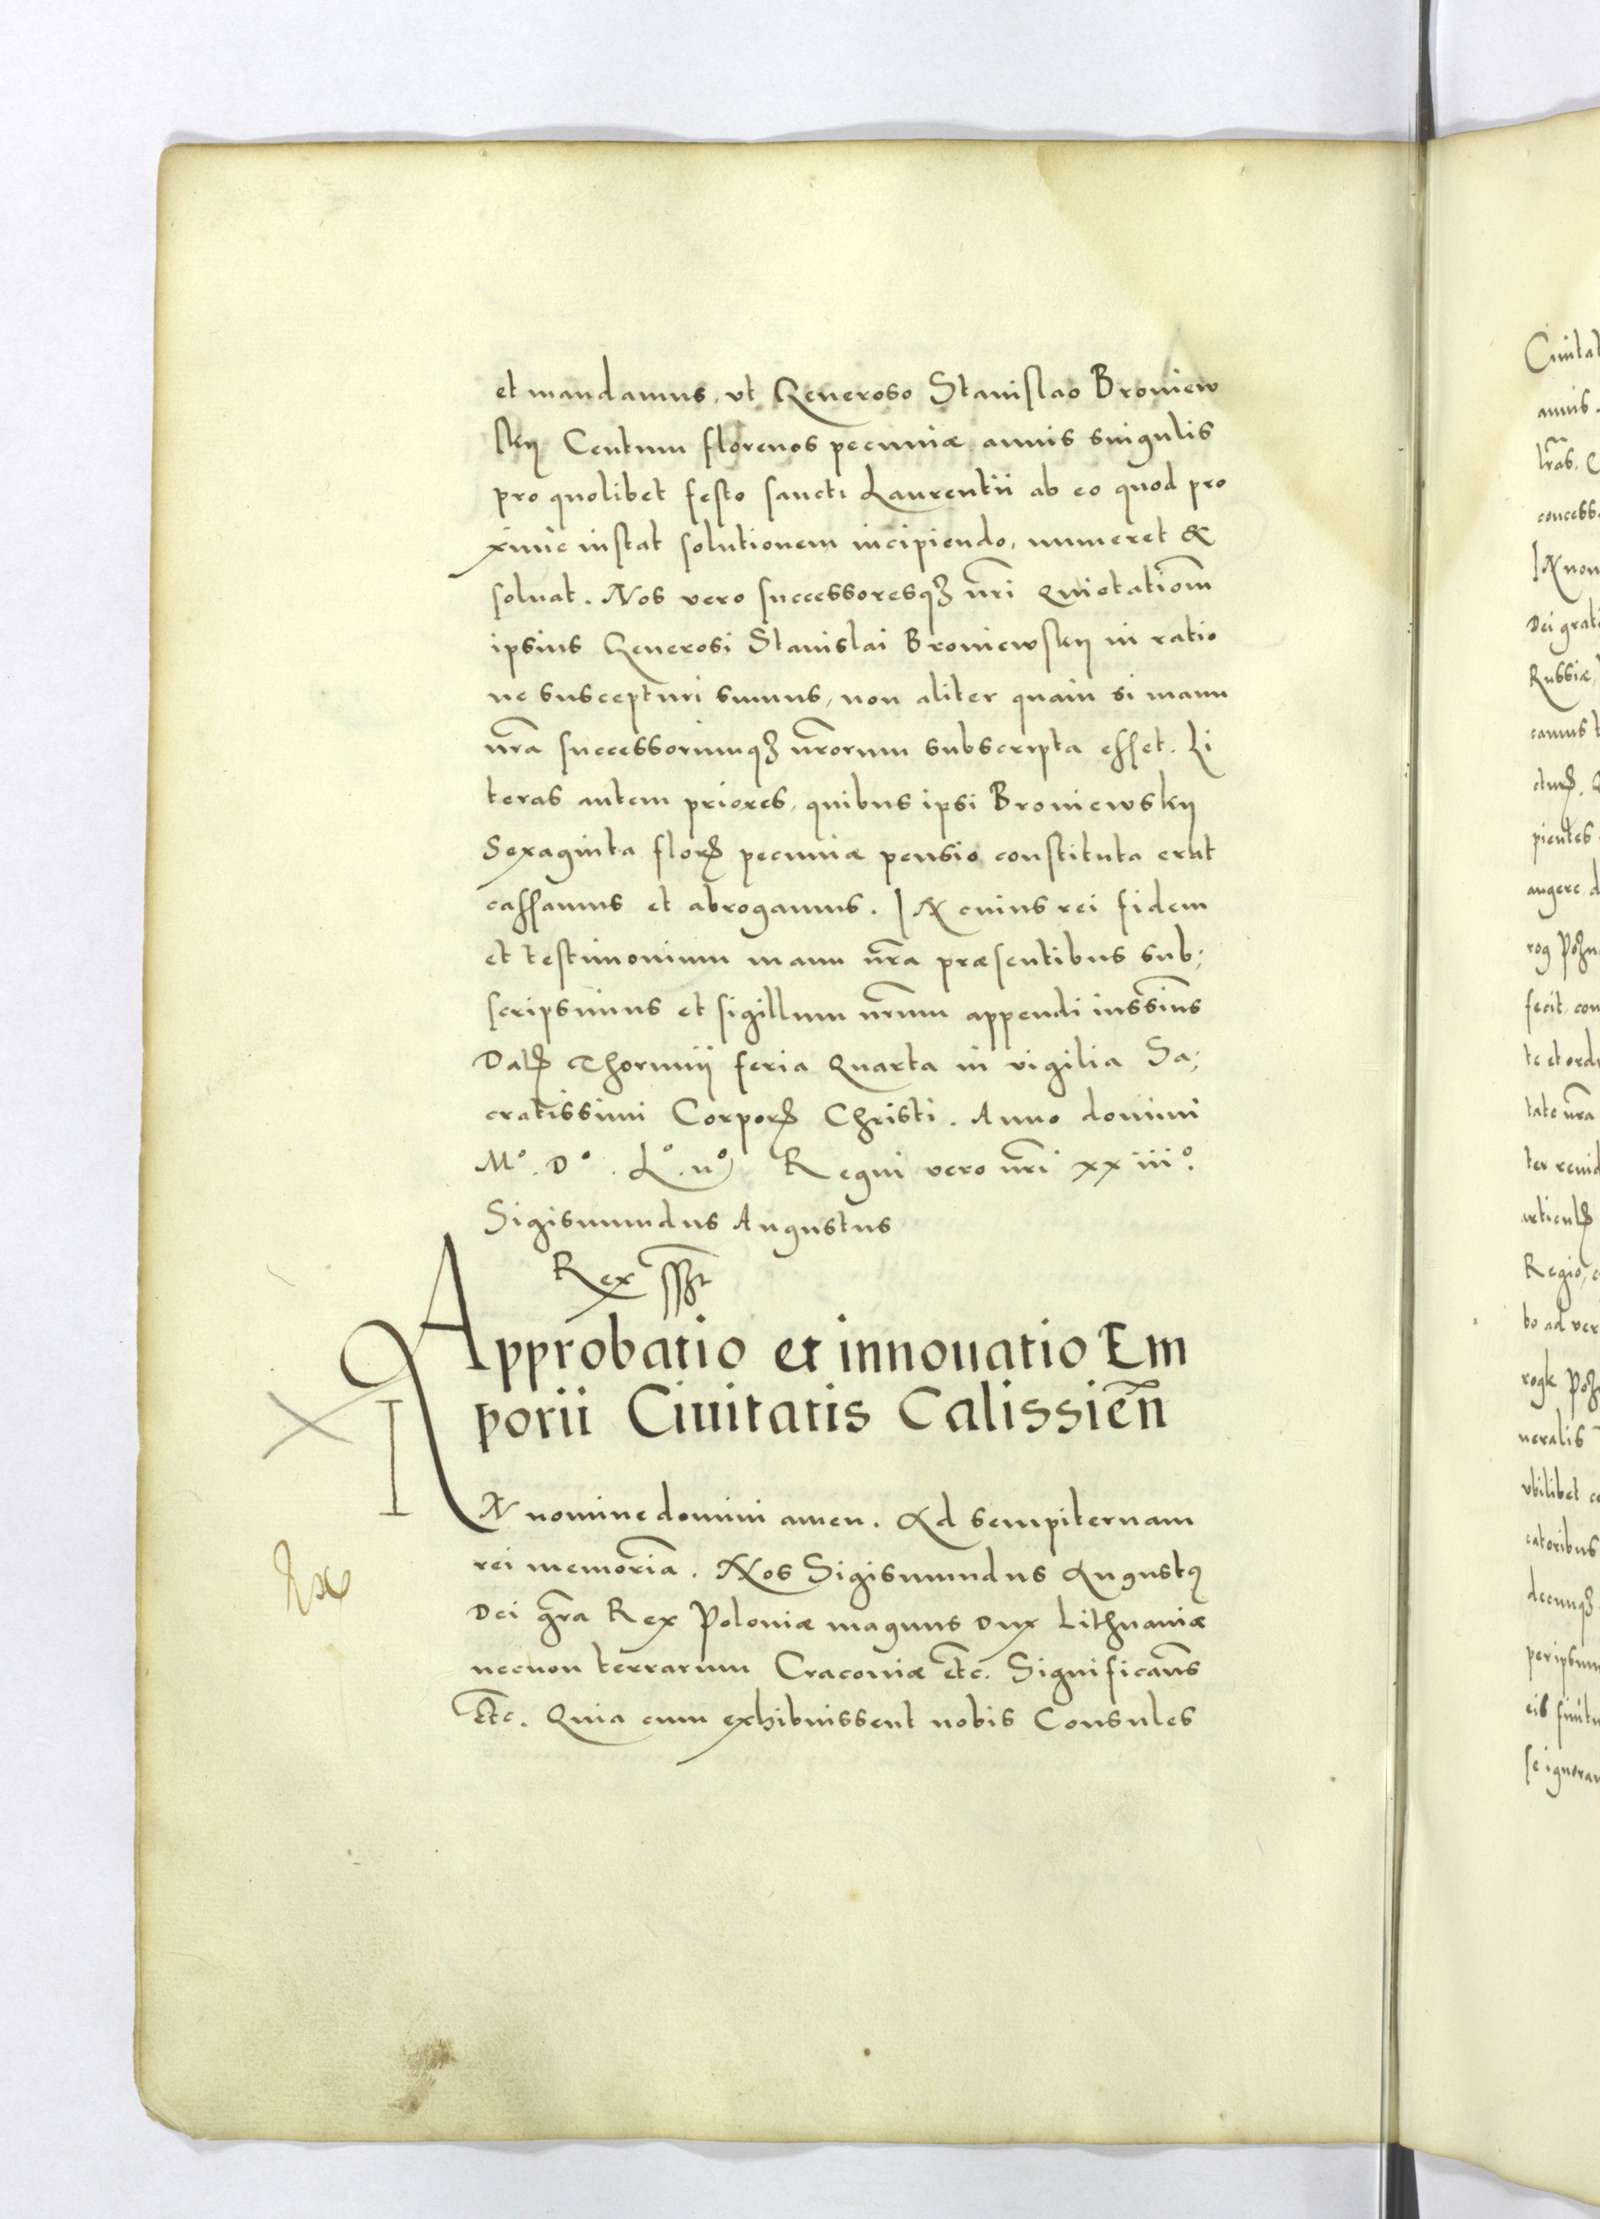 et mandamus, vt Generoso Stanislao Broniew
skÿ Centum florenos pecuniæ annis singulis
pro quolibet festo sancti Laurentii ab eo quod pro
xime instat solutionem incipiendo, numeret &
soluat. Nos vero successoresqꝫ nr̃i quietationẽm
ipsius Generosi Stanislai Broniewskÿ in ratio
ne suscepturi sumus, non aliter quam si manu
nr̃a successorumqꝫ nr̃orum subscripta esset. Li
teras autem priores, quibus ipsi Broniewskÿ
Sexaginta florꝭ pecuniæ pensio constituta erat
cassamus et abrogamus. IN cuius rei fidem
et testimonium manu nr̃a præsentibus sub;
scripsimus et sigillum nr̃um appendi iussim̃us
Datꝭ Thorunÿ feria quarta in vigilia Sa;
cratissimi Corporꝭ Christi. Anno domini
Mº. Dº. Lº. IIº Regni vero nr̃i xxiiiº.
Sigismundus Augustus
Rex
Approbatio et innouatio Em
porii Ciuitatis Calissieñ
IN nomine domini amen. Ad sempiternam
rei memoriã. Nos Sigismundus Augustꝰ
Dei gr̃a Rex Poloniæ magnus Dux Lithuaniæ
necnon terrarum Cracoviæ etc̃. Significam̃s
etc̃. Quia cum exhibuissent nobis Consules
Dei grati
Russiæ,
pientes
augere d
fecit, con
tate nr̃a
Regio,
neralis
vbilibet
catoribus